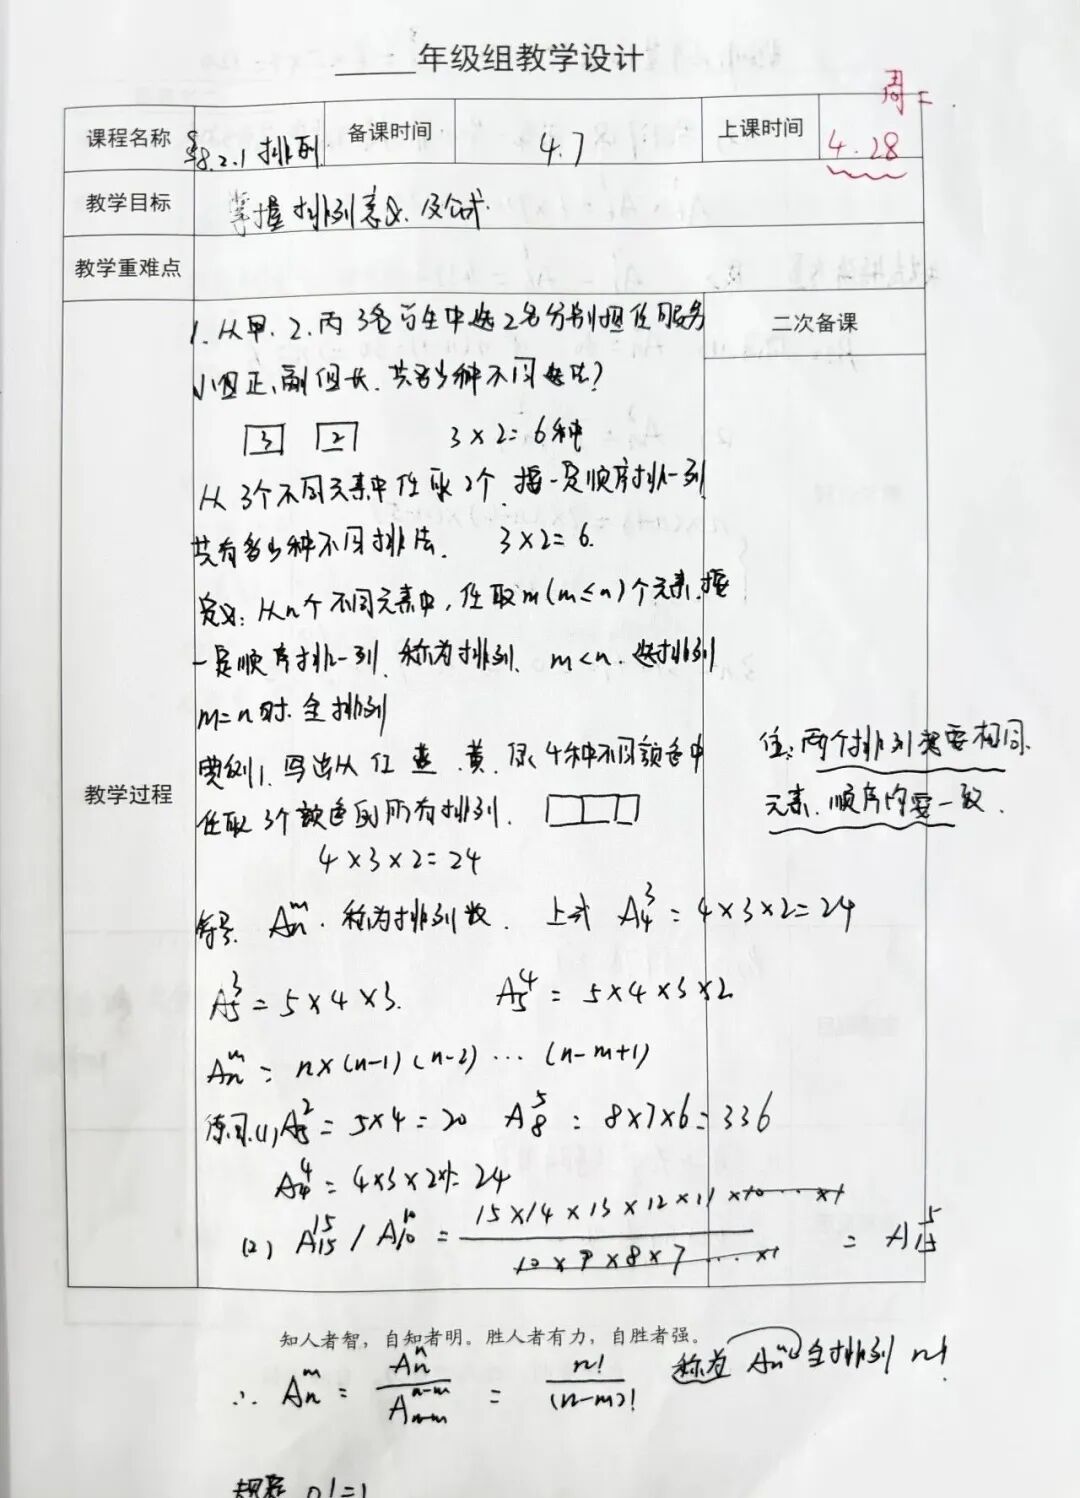 年级组教学设计
周二
课程名称 §8.2.1 排列 备课时间 4.7 上课时间 4.28
教学目标 掌握排列意义及公式.
教学重难点
1. 从甲、乙、丙 3名学生中选2名分别担任服务
二次备课
小组正、副组长. 共多少种不同选法?
3 2 3×2=6种
从3个不同元素中任取2个,按一定顺序排一列
共有多少种不同排法. 3×2=6.
定义: 从n个不同元素中, 任取m(m≤n)个元素.按
一定顺序排一列. 称为排列. m<n. 选排列
m=n时. 全排列
典例1. 写出从红 蓝 黄 绿 4种不同颜色中
任取3个颜色的所有排列.
4×3×2=24
注: 两个排列若要相同.
元素、顺序均要一致.
教学过程
符号. Aₙᵐ. 称为排列数. 上式 A₄³=4×3×2=24
A₅³=5×4×3. A₅⁴=5×4×3×2
Aₙᵐ=n×(n-1)(n-2)⋯(n-m+1)
练习.(1) A₅²=5×4=20 A₈⁵=8×7×6=336
A₄⁴=4×3×2×1=24
(2) A₁₅¹⁵/A₁₀¹⁰=15×14×13×12×11×10⋯×1
10×9×8×7⋯×1 =A₁₅⁵
知人者智，自知者明。胜人者有力，自胜者强。
∴ Aₙᵐ=Aₙⁿ/Aₙ₋ₘⁿ⁻ᵐ=n!/(n-m)! 称为 Aₙⁿ 全排列 n!
规定 0!=1